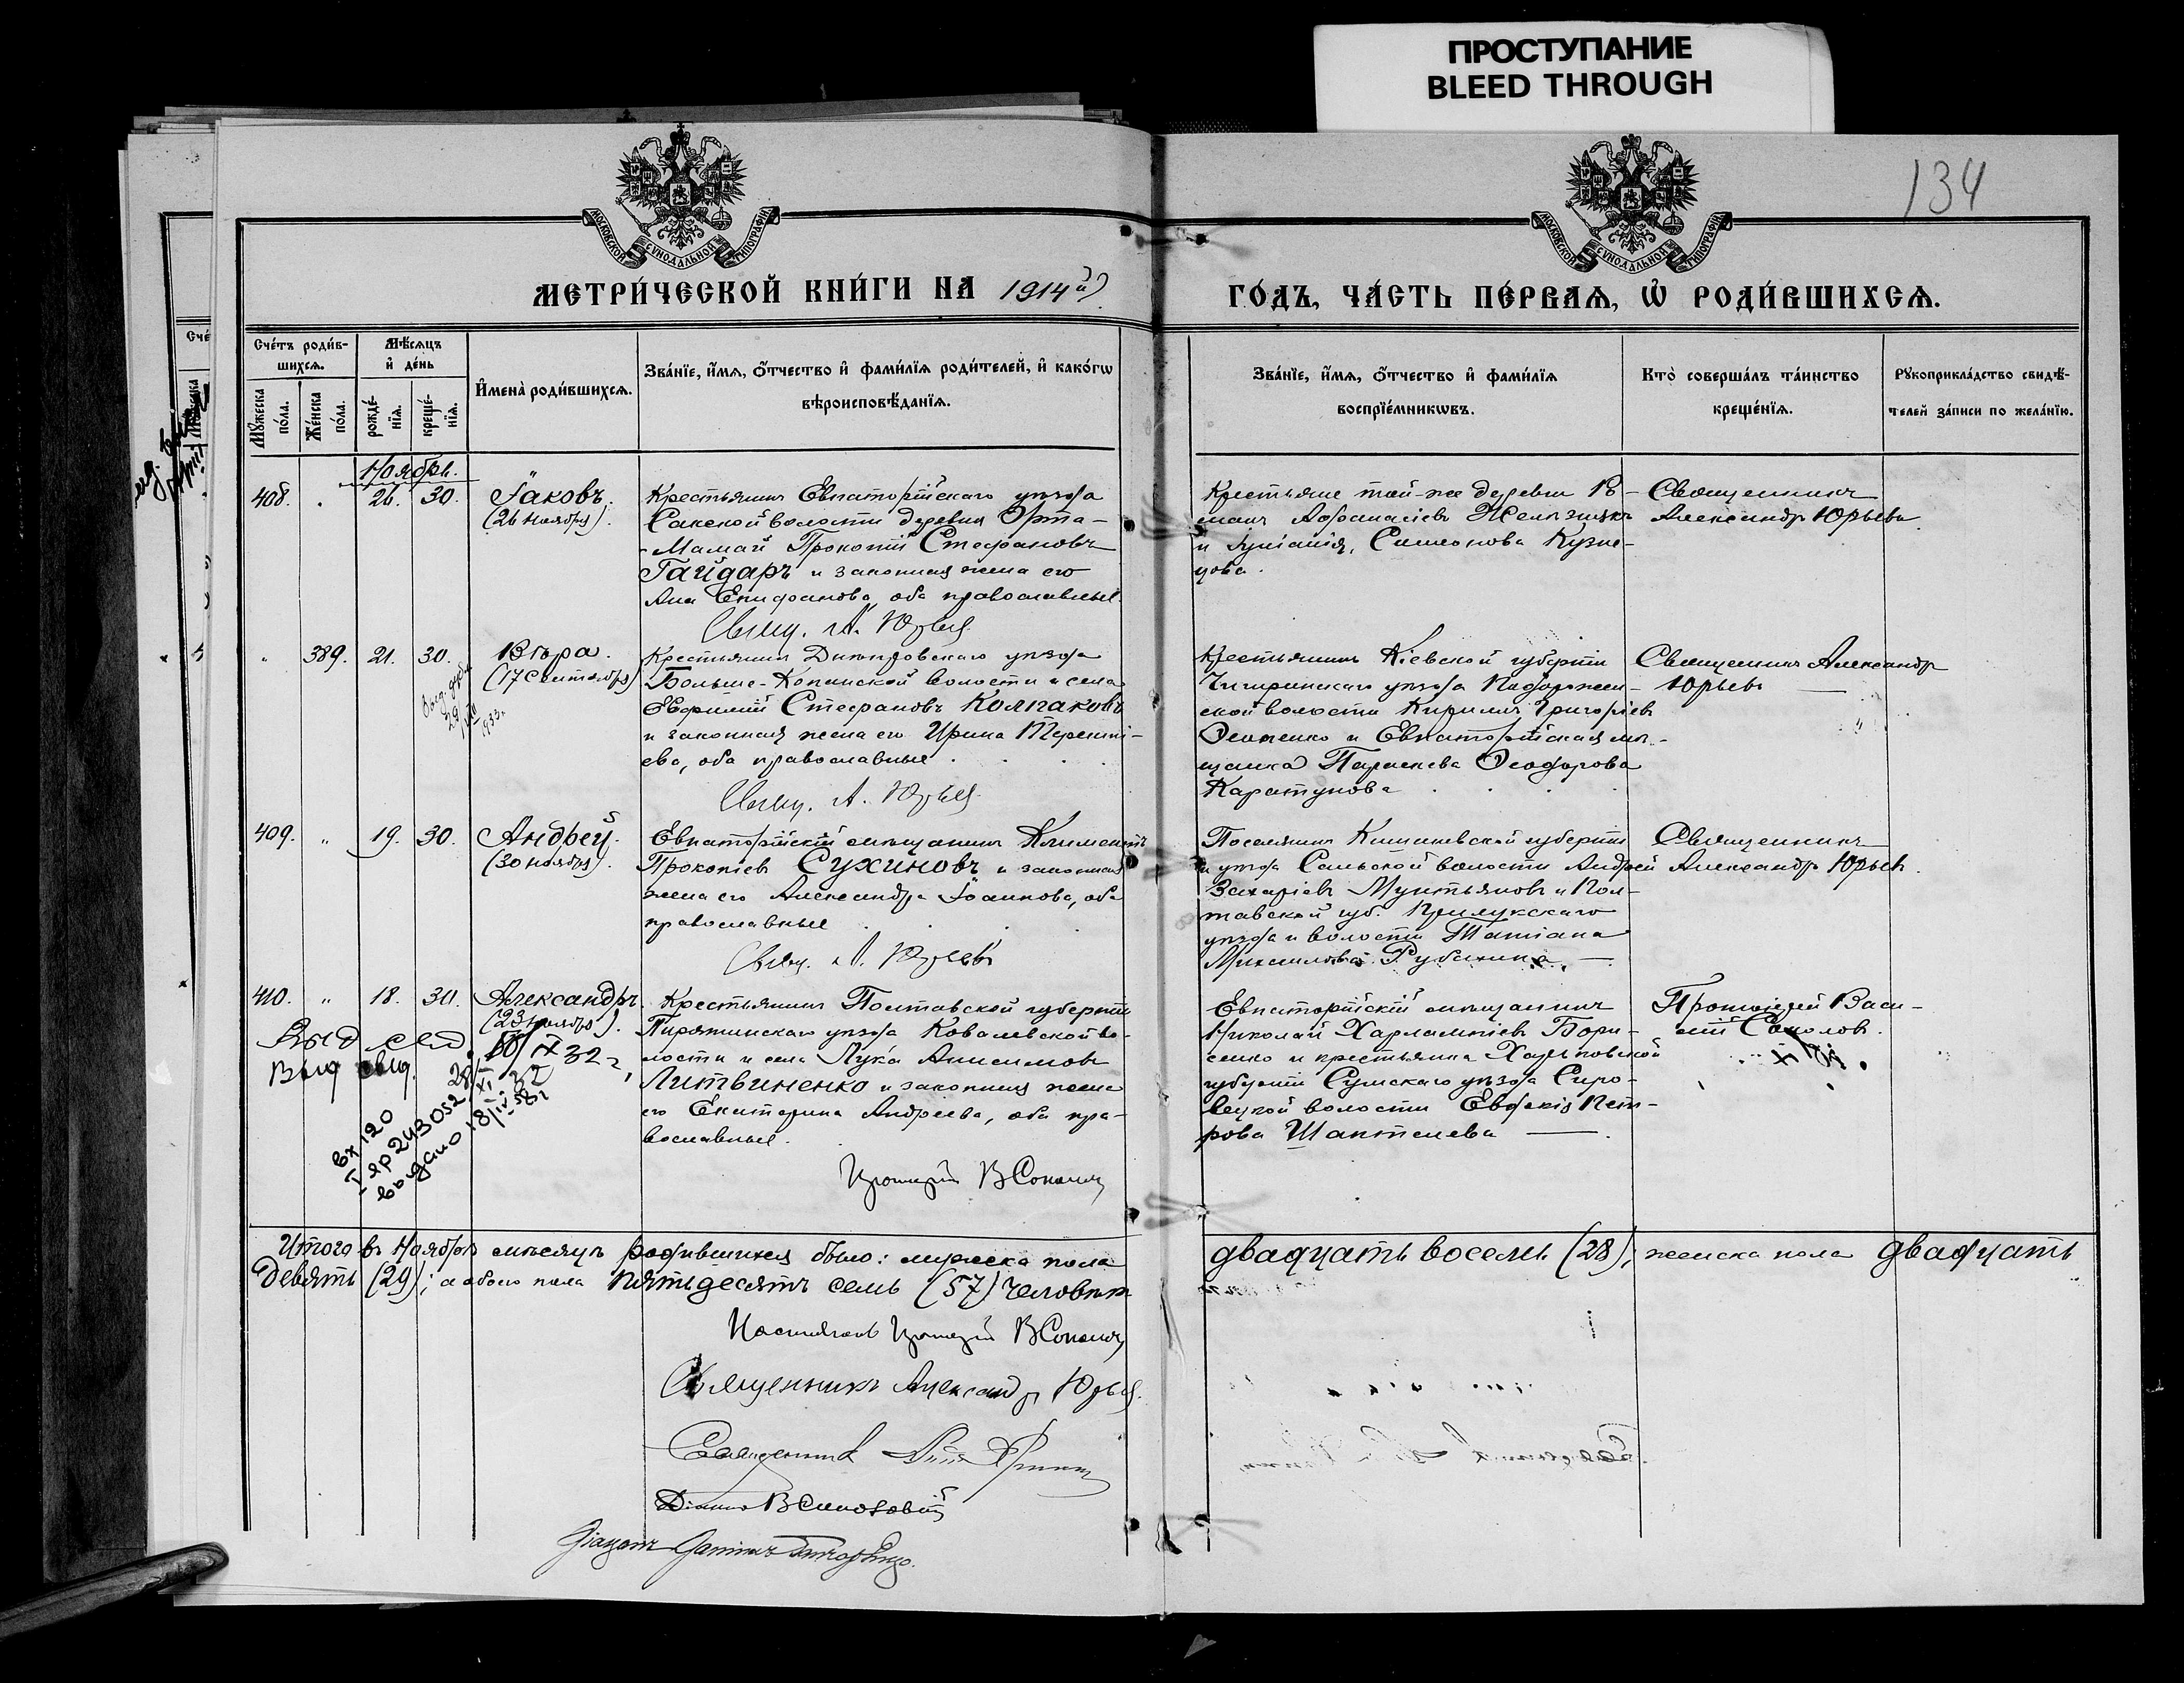 ПРОСТУПАНИЕ
BLEED THROUGH
134
МОСКОВСКОЙ СѴНОДАЛЬНОЙ ТИПОГРАФІИ
МОСКОВСКОЙ СѴНОДАЛЬНОЙ ТИПОГРАФІИ
МЕТРИ́ЧЕСКОЙ КНИ́ГИ НА 1914й
ГО́ДЪ, ЧА́СТЬ ПЕ́РВАѦ, Ѡ҆ РОДИ́ВШИХСѦ.
Сче́тъ роди́в-
шихсѧ.
Мѣ́сѧцъ
и҆ де́нь
Мꙋ́жеска
по́ла.
Же́нска
по́ла.
рожде́-
нїѧ.
креще́-
нїѧ.
И҆мена̀ роди́вшихсѧ.
Зва́нїе, и҆́мѧ, ѻ҆́тчество и҆ фами́лїѧ роди́телей, и҆ како́гѡ
вѣроисповѣ́данїѧ.
Зва́нїе, и҆́мѧ, ѻ҆́тчество и҆ фами́лїѧ
воспрїе́мникѡвъ.
Кто̀ соверша́лъ та́инство
креще́нїѧ.
Рꙋкоприкла́дство свидѣ́-
телей за́писи по жела́нїю.
Ноябрь.
408. 26. 30. Іаковъ.
(26 ноября).
Крестьянинъ Евпаторійскаго уѣзда
Сакской волости деревни Орта-
-Мамай Прокопій Стефановъ
Гайдаръ и законная жена его
Анна Епифанова, оба православные.
Свящ. А. Юрьевъ
Крестьяне той-же деревни Ро-
манъ Афанасіевъ Желѣзнякъ
и Іуліанія Симеонова Кузне-
цова.
Священникъ
Александръ Юрьевъ
" 389. 21. 30. Вѣра.
(17 Сентября)
29 1933г
Крестьянинъ Днѣпровскаго уѣзда
Больше-Копанской волости и села
Евфимій Стефановъ Колпаковъ
и законная жена его Ирина Теренті-
ева, оба православные.
Свящ. А. Юрьевъ
Крестьянинъ Кіевской губерніи
Чигиринскаго уѣзда
ской волости Кириллъ Григоріевъ
Осипенко и Евпаторійская мѣ-
щанка Параскева Ѳеодорова
Каратунова
Священникъ Александръ
Юрьевъ
409. " 19. 30. Андрей.
(30 ноября).
Евпаторійскій мѣщанинъ Климентъ
Прокопіевъ Сухиновъ и законная
жена его Александра Іоаннова, оба
православные
Свящ. А. Юрьевъ
Поселянинъ Кишиневской губерніи
и уѣзда волости Андрей
Захаріевъ Мунтьяновъ и Пол-
тавской губ. Прилукскаго
уѣзда и волости Татіана
Михаилова Рубанина
Священникъ
Александръ Юрьевъ.
410. " 18. 30. Александръ.
(23 ноября).
Крестьянинъ Полтавской губерніи
Пирятинскаго уѣзда Ковалевской во-
лости и села Лука Анисимовъ
Литвиненко и законная жена
его Екатерина Андреева, оба пра-
вославные.
Протоіерей В Соколовъ
Евпаторійскій мѣщанинъ
Николай Харлампіевъ Бори-
сенко и крестьянка Харьковской
губерніи Сумскаго уѣзда Сиро-
ватской волости Евдокія Пет-
рова Шаптелева
Протоіерей Васи-
лій Соколовъ.
Выд свид.
вх 120
выдано 18/IV 58г
Итого въ Ноябрѣ мѣсяцѣ родившихся было: мужеска пола двадцать восемь (28); женска пола двадцать
девять (29); а обоего пола пятьдесятъ семь (57) человѣкъ
Настоятель Протоіерей В Соколовъ
Священникъ Александръ Юрьевъ.
Священникъ